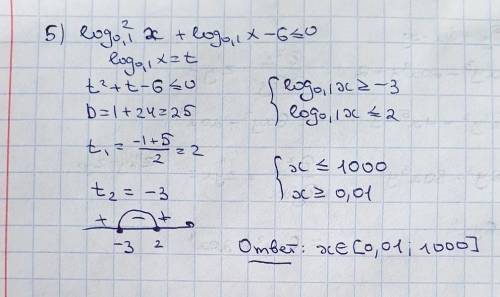 5) log²₀,₁ x + log₀,₁ x - 6 ≤ 0
log₀,₁ x = t
t² + t - 6 ≤ 0
D = 1 + 24 = 25
t₁ = (-1+5)/2 = 2
t₂ = -3
+ - +
-3 2
{ log₀,₁ x ≥ -3
log₀,₁ x ≤ 2
{ x ≤ 1000
x ≥ 0,01
Ответ: x ∈ [0,01; 1000]